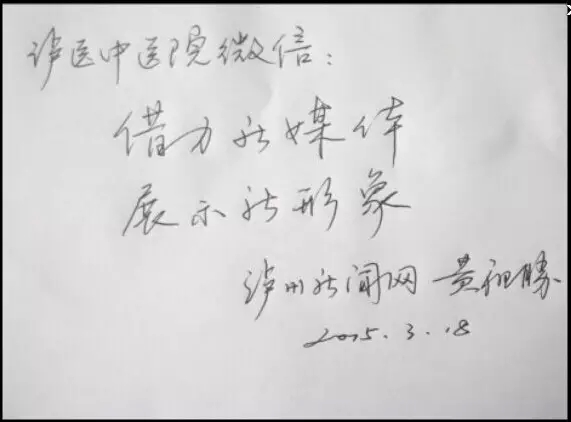 泸医中医院微信：
借力新媒体
展示新形象
泸州新闻网 黄祖勝
2015.3.18